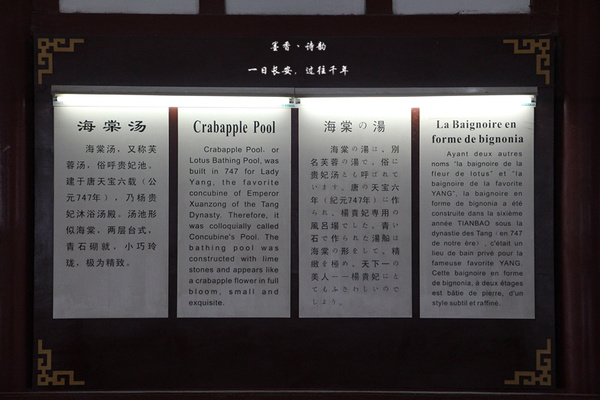 墨香·诗韵
一日长安，过往千年
海棠汤
海棠汤，又称芙
蓉汤，俗呼贵妃池。
建于唐天宝六载（公
元747年），乃杨贵
妃沐浴汤殿。汤池形
似海棠，两层台式，
青石砌就，小巧玲
珑，极为精致。
Crabapple Pool
Crabapple Pool, or
Lotus Bathing Pool, was
built in 747 for Lady
Yang, the favorite
concubine of Emperor
Xuanzong of the Tang
Dynasty. Therefore, it
was colloquially called
Concubine's Pool. The
bathing pool was
constructed with lime
stones and appears like
a crabapple flower in full
bloom, small and
exquisite.
海棠の湯
海棠の湯は、別
名芙蓉の湯で、俗に
貴妃湯とも呼ばれて
います。唐の天宝六
年（紀元747年）に作
られ、楊貴妃専用の
風呂場でした。青い
石で作られた湯船は
海棠の形をして、精
緻を極め、天下一の
美人－－楊貴妃にと
てもふさわしいので
しょう。
La Baignoire en
forme de bignonia
Ayant deux autres
noms "la baignoire de la
fleur de lotus" et "la
baignoire de la favorite
YANG", la baignoire en
forme de bignonia a été
construite dans la sixième
année TIANBAO sous la
dynastie des Tang (en 747
de notre ère), c'était un
lieu de bain privé pour la
fameuse favorite YANG.
Cette baignoire en forme
de bignonia, à deux étages
est bâtie de pierre, d'un
style subtil et raffiné.